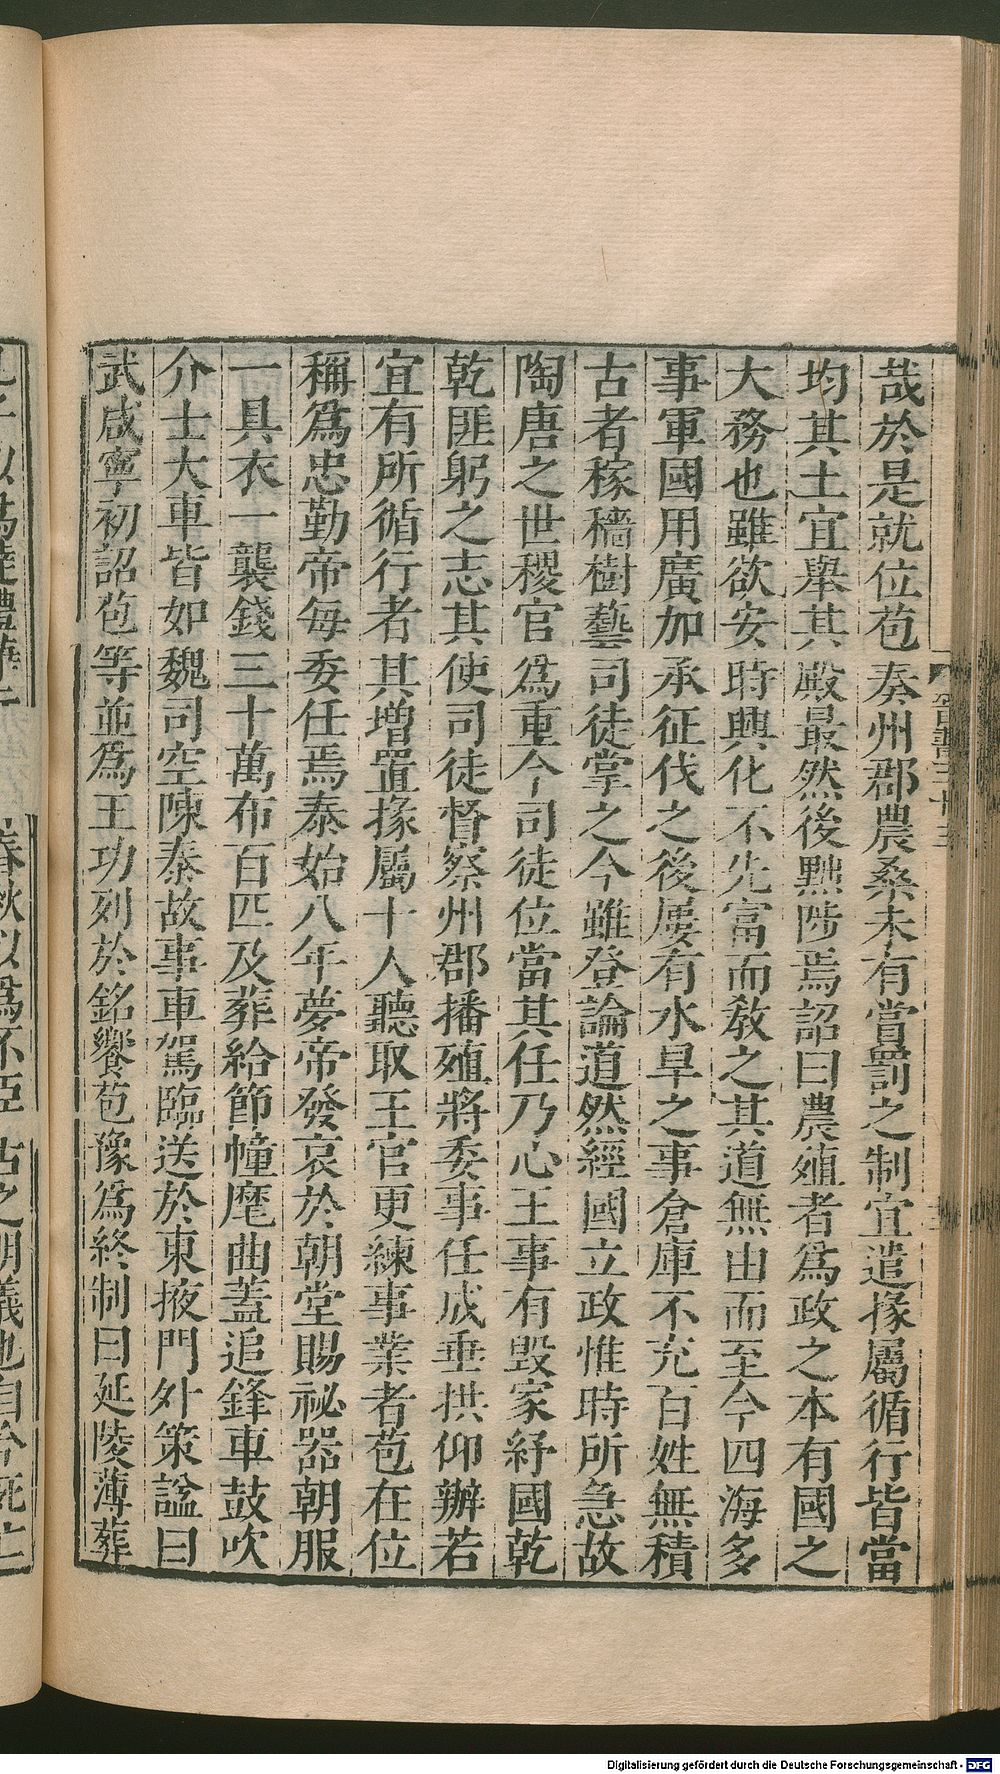 哉於是就位苞奏州郡農桑未有賞罰之制宜遣掾屬循行皆當
均其土宜舉其殿最然後黜陟焉詔曰農殖者爲政之本有國之
大務也雖欲安時興化不先富而敎之其道無由而至今四海多
事軍國用廣加承征伐之後屢有水旱之事倉庫不充百姓無積
古者稼穡樹藝司徒掌之今雖登論道然經國立政惟時所急故
陶唐之世稷官爲重今司徒位當其任乃心王事有毁家紓國乾
乾匪躬之志其使司徒督察州郡播殖將委事任成垂拱仰辦若
宜有所循行者其增置掾屬十人聽取王官更練事業者苞在位
稱爲忠勤帝每委任焉泰始八年夢帝發哀於朝堂賜祕器朝服
一具衣一襲錢三十萬布百匹及葬給節幢麾曲蓋追鋒車鼓吹
介士大車皆如魏司空陳泰故事車駕臨送於東掖門外策諡曰
武咸寧初詔苞等並爲王功列於銘饗苞豫爲終制曰延陵薄葬
春秋以爲不臣古之明義也自今死亡
Digitalisierung gefördert durch die Deutsche Forschungsgemeinschaft - DFG